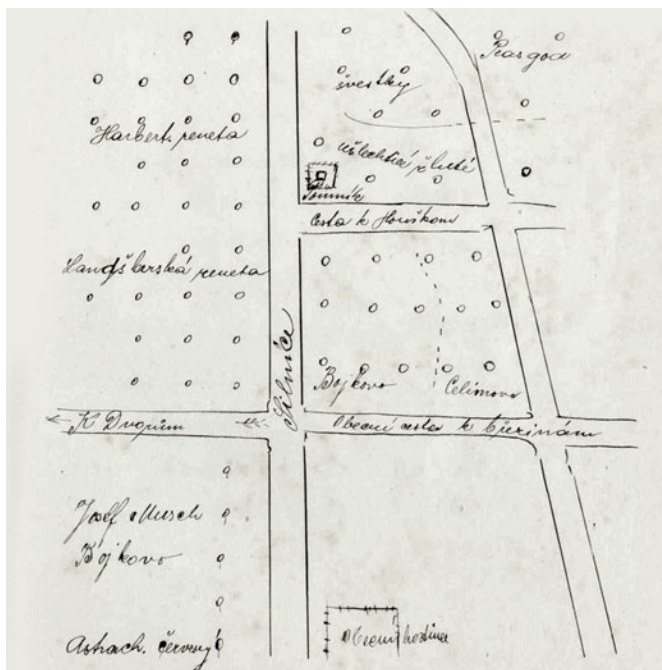 Peasgod
švestky
Harbert. reneta
ušlechtilé žluté
Pomník
Cesta k Houškom
Landšberská reneta
Silnice
Bojkovo
Celinovo
K Dvorům
Obecní cesta k Březinám
Josef Musch
Bojkovo
Astrach. červený
Obecní hostinec